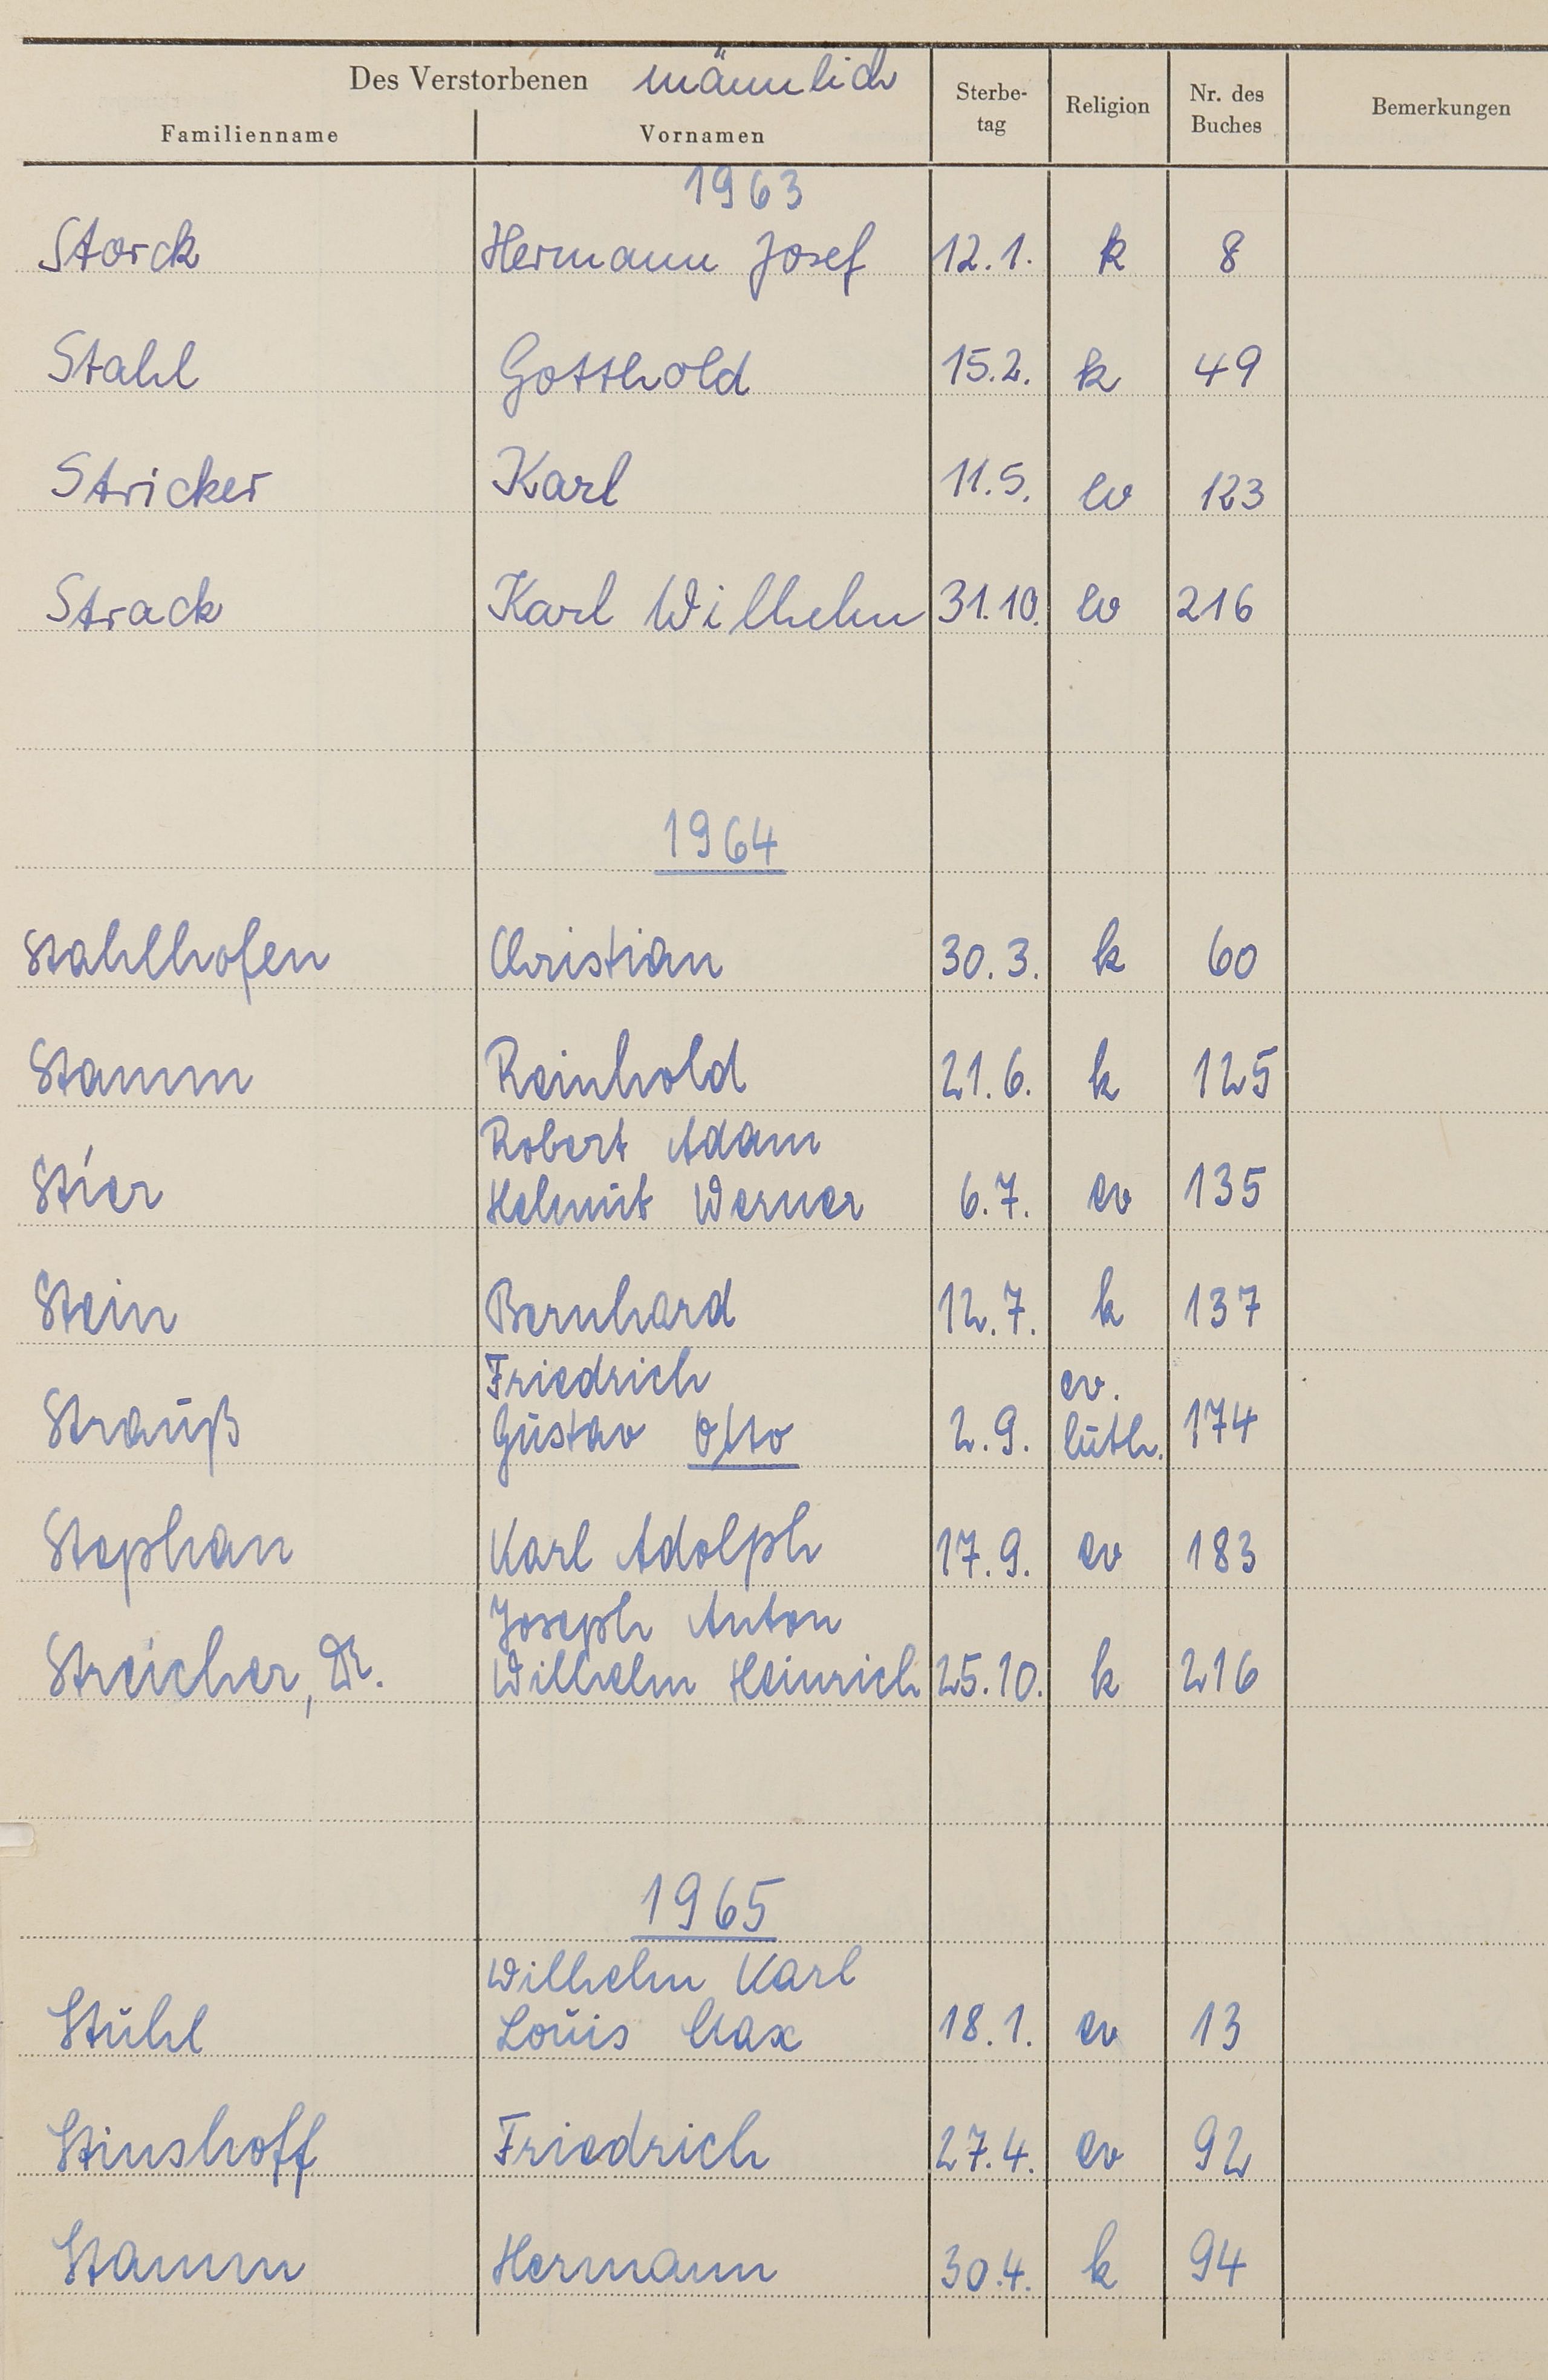 Des Verstorbenen männlich
Familienname Vornamen Sterbe-
tag Religion Nr. des
Buches Bemerkungen
1963
Storck Hermann Josef 12.1. k 8
Stahl Gotthold 15.2. k 49
Stricker Karl 11.5. ev 123
Strack Karl Wilhelm 31.10. ev 216
1964
Stahlhofen Christian 30.3. k 60
Stamm Reinhold 21.6. k 125
Robert Adam
Stier Helmut Werner 6.7. ev 135
Stein Bernhard 12.7. k 137
Friedrich ev.
Strauß Gustav Otto 2.9. luth. 174
Stephan Karl Adolph 17.9. ev 183
Joseph Anton
Streicher, Dr. Wilhelm Heinrich 25.10. k 216
1965
Wilhelm Karl
Stuhl Louis Max 18.1. ev 13
Stinshoff Friedrich 27.4. ev 92
Stamm Hermann 30.4. k 94